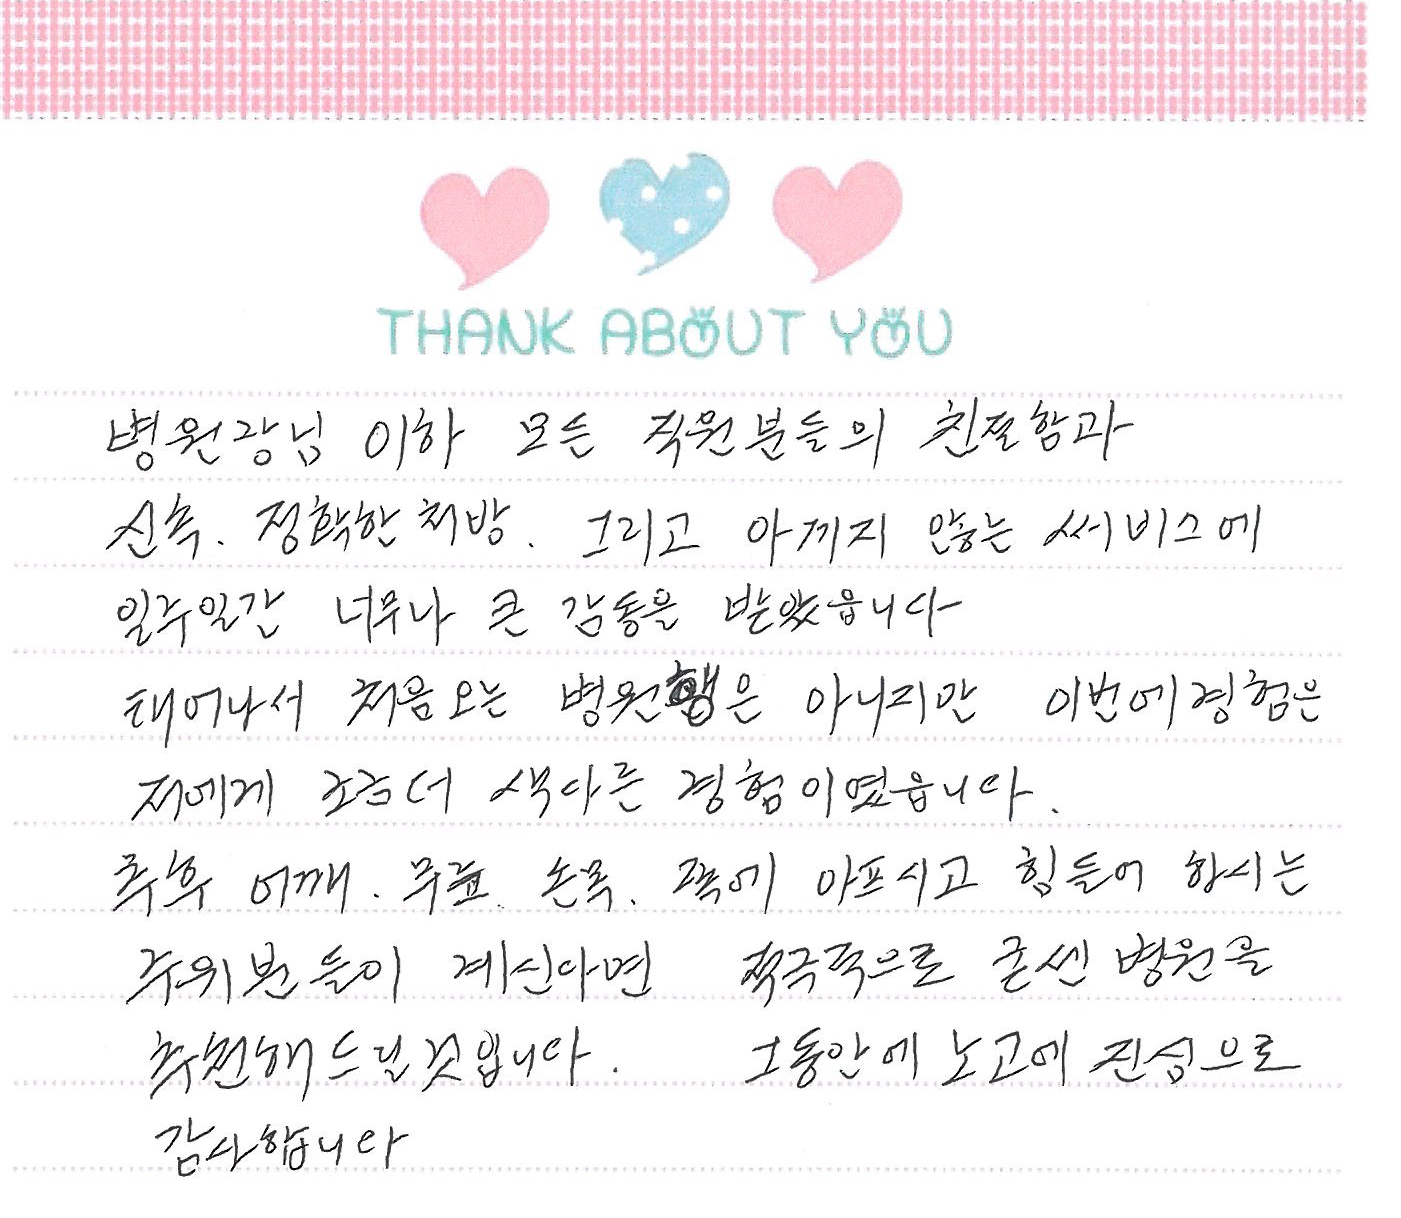 THANK ABOUT YOU
병원장님 이하 모든 직원분들의 친절함과
신속. 정확한 처방. 그리고 아끼지 않는 써비스에
일주일간 너무나 큰 감동을 받았읍니다
태어나서 처음오는 병원행은 아니지만 이번에경험은
저에게 조금더 색다른 경험이였읍니다.
추후 어깨. 무릎. 손목. 쪽에 아프시고 힘들어 하시는
주위분들이 계신다면 적극적으로 굳쎈병원을
추천해드릴것입니다. 그동안에 노고에 진심으로
감사합니다